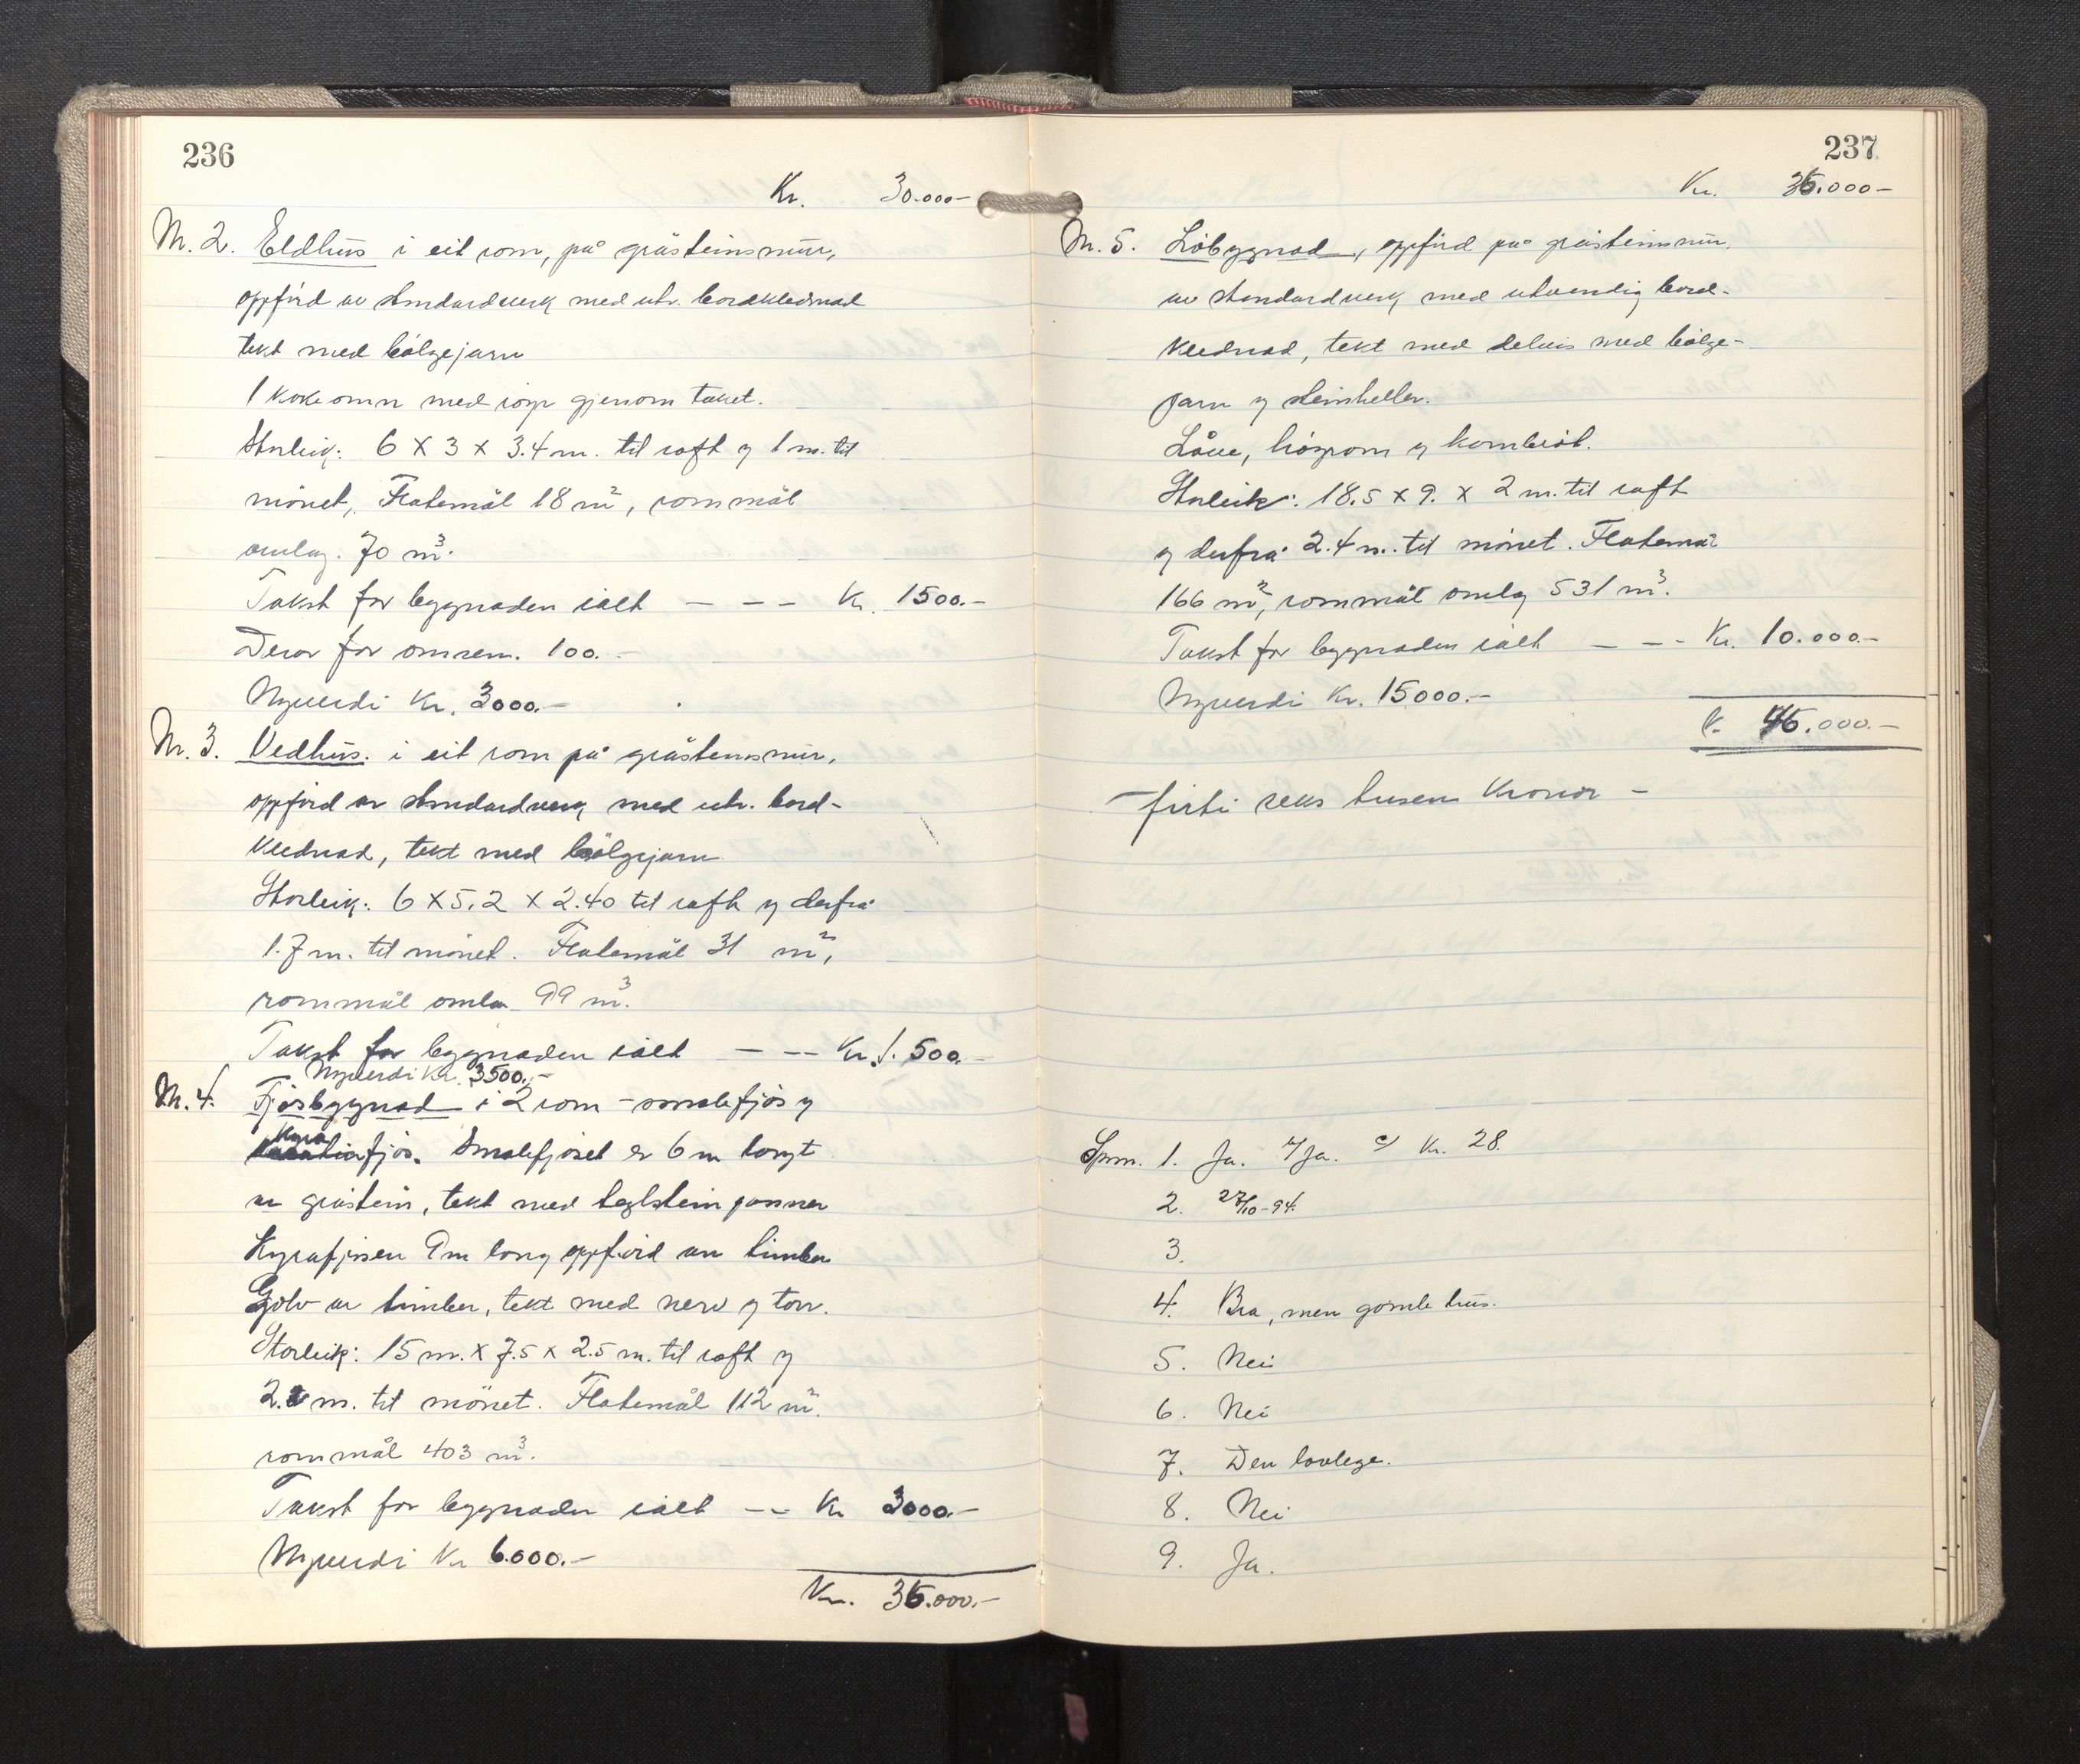 236
Kr. 30.000.-
M. 2. Eldhus i eit rom, på gråsteinsmur,
oppförd av standardverk med utv. bordklednad
tekt med bölgjejarn
1 kokeomn med röyr gjenom taket.
Storleik: 6 x 3 x 3.4 m. til raft og 1 m. til
mönet, Flatemål 18 m², rommål
omlag. 70 m³.
Takst for bygnaden ialt - - - Kr. 1500.-
Derav for omnen. 100.-
Nyverdi Kr. 3000.-
Nr. 3. Vedhus. i eit rom på gråsteinsmur,
oppförd av standardverk med utv. bord-
klednad, tekt med bölgjejarn
Storleik: 6 x 5.2 x 2.40 til raft og derfra
1.7 m. til mönet. Flatemål 31 m²,
rommål omla 99 m³.
Takst for bygnaden ialt - - - Kr. 1.500.-
Nyverdi Kr. 3500.-
M. 4. Fjösbygnad i 2 rom - smalefjös og
kyrafjös. Smalefjöset er 6 m langt
av gråstein, tekt med teglsteinpanner
Kyrafjösen 9 m lang oppförd av timber
Golv av timber, tekt med nerv og torv.
Storleik: 15 m. x 7.5 x 2.5 m. til raft og
2.2 m. til mönet. Flatemål 112 m².
rommål 403 m³.
Takst for bygnaden ialt - - Kr 3000.-
Nyverdi Kr 6.000.-
Kr. 36.000.-
237
Kr. 36.000-
M. 5. Löbygnad, oppförd på gråsteinsmur.
av standardverk med utvendig bord-
klednad, tekt med delvis med bölgje-
jarn og steinheller.
Låve, höyrom og kornbröt.
Storleik: 18.5 x 9. x 2 m. til raft
og derfrå 2.4 m. til mönet. Flatemål
166 m², rommål omlag 531 m³.
Takst for bygnaden ialt - - - Kr. 10.000.-
Nyverdi Kr. 15000.-
K. 46.000.-
- firti seks tusen Kronor -
Spm. 1. Ja. b/ Ja. c/ Kr. 28.
2. 27/10-94.
3.
4. Bra, men gamle hus.
5. Nei
6. Nei
7. Den lovlege.
8. Nei
9. Ja.